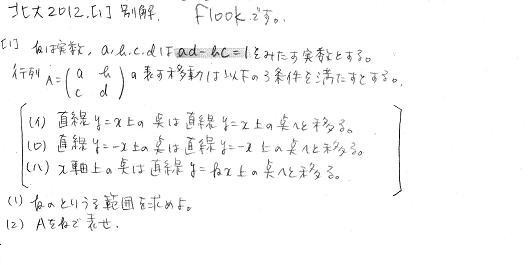 北大2012.[1] 別解. flookです。
[1] kは実数, a,b,c,dはad-bc=1をみたす実数とする。
行列 A=(a b c d)の表す移動は以下の3条件を満たすとする。
(イ) 直線 y=x上の点は直線 y=x上の点へと移る。
(ロ) 直線 y=-x上の点は直線 y=-x上の点へと移る。
(ハ) x軸上の点は直線 y=kx上の点へと移る。
(1) kのとりうる範囲を求めよ。
(2) Aをkで表せ.